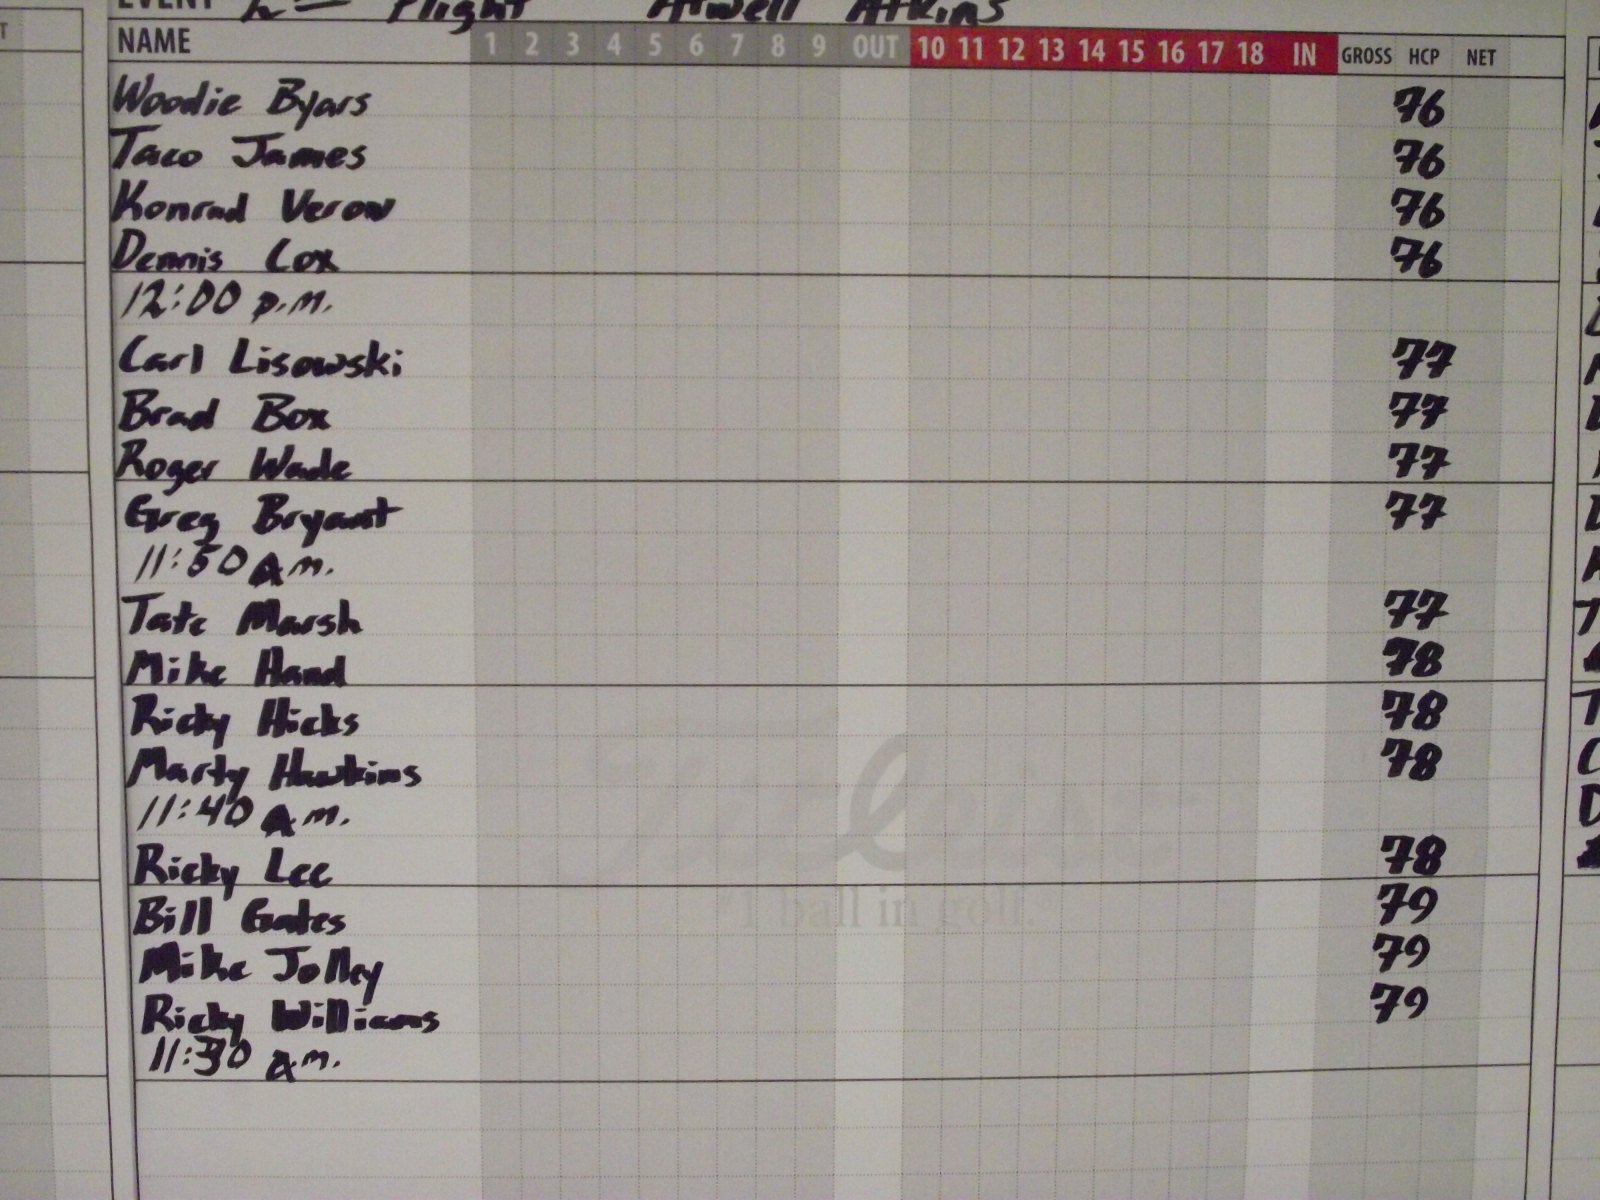 EVENT Flight Atwell Atkins
NAME 1 2 3 4 5 6 7 8 9 OUT 10 11 12 13 14 15 16 17 18 IN GROSS HCP NET
Woodie Byars 76
Taco James 76
Konrad Verow 76
Dennis Cox 76
12:00 p.m.
Carl Lisowski 77
Brad Box 77
Roger Wade 77
Greg Bryant 77
11:50 a.m.
Tate Marsh 77
Mike Hand 78
Ricky Hicks 78
Marty Hawkins 78
11:40 a.m.
Ricky Lee 78
Bill Gates 79
ball in golf.
Mike Jolley 79
Ricky Williams 79
11:30 a.m.